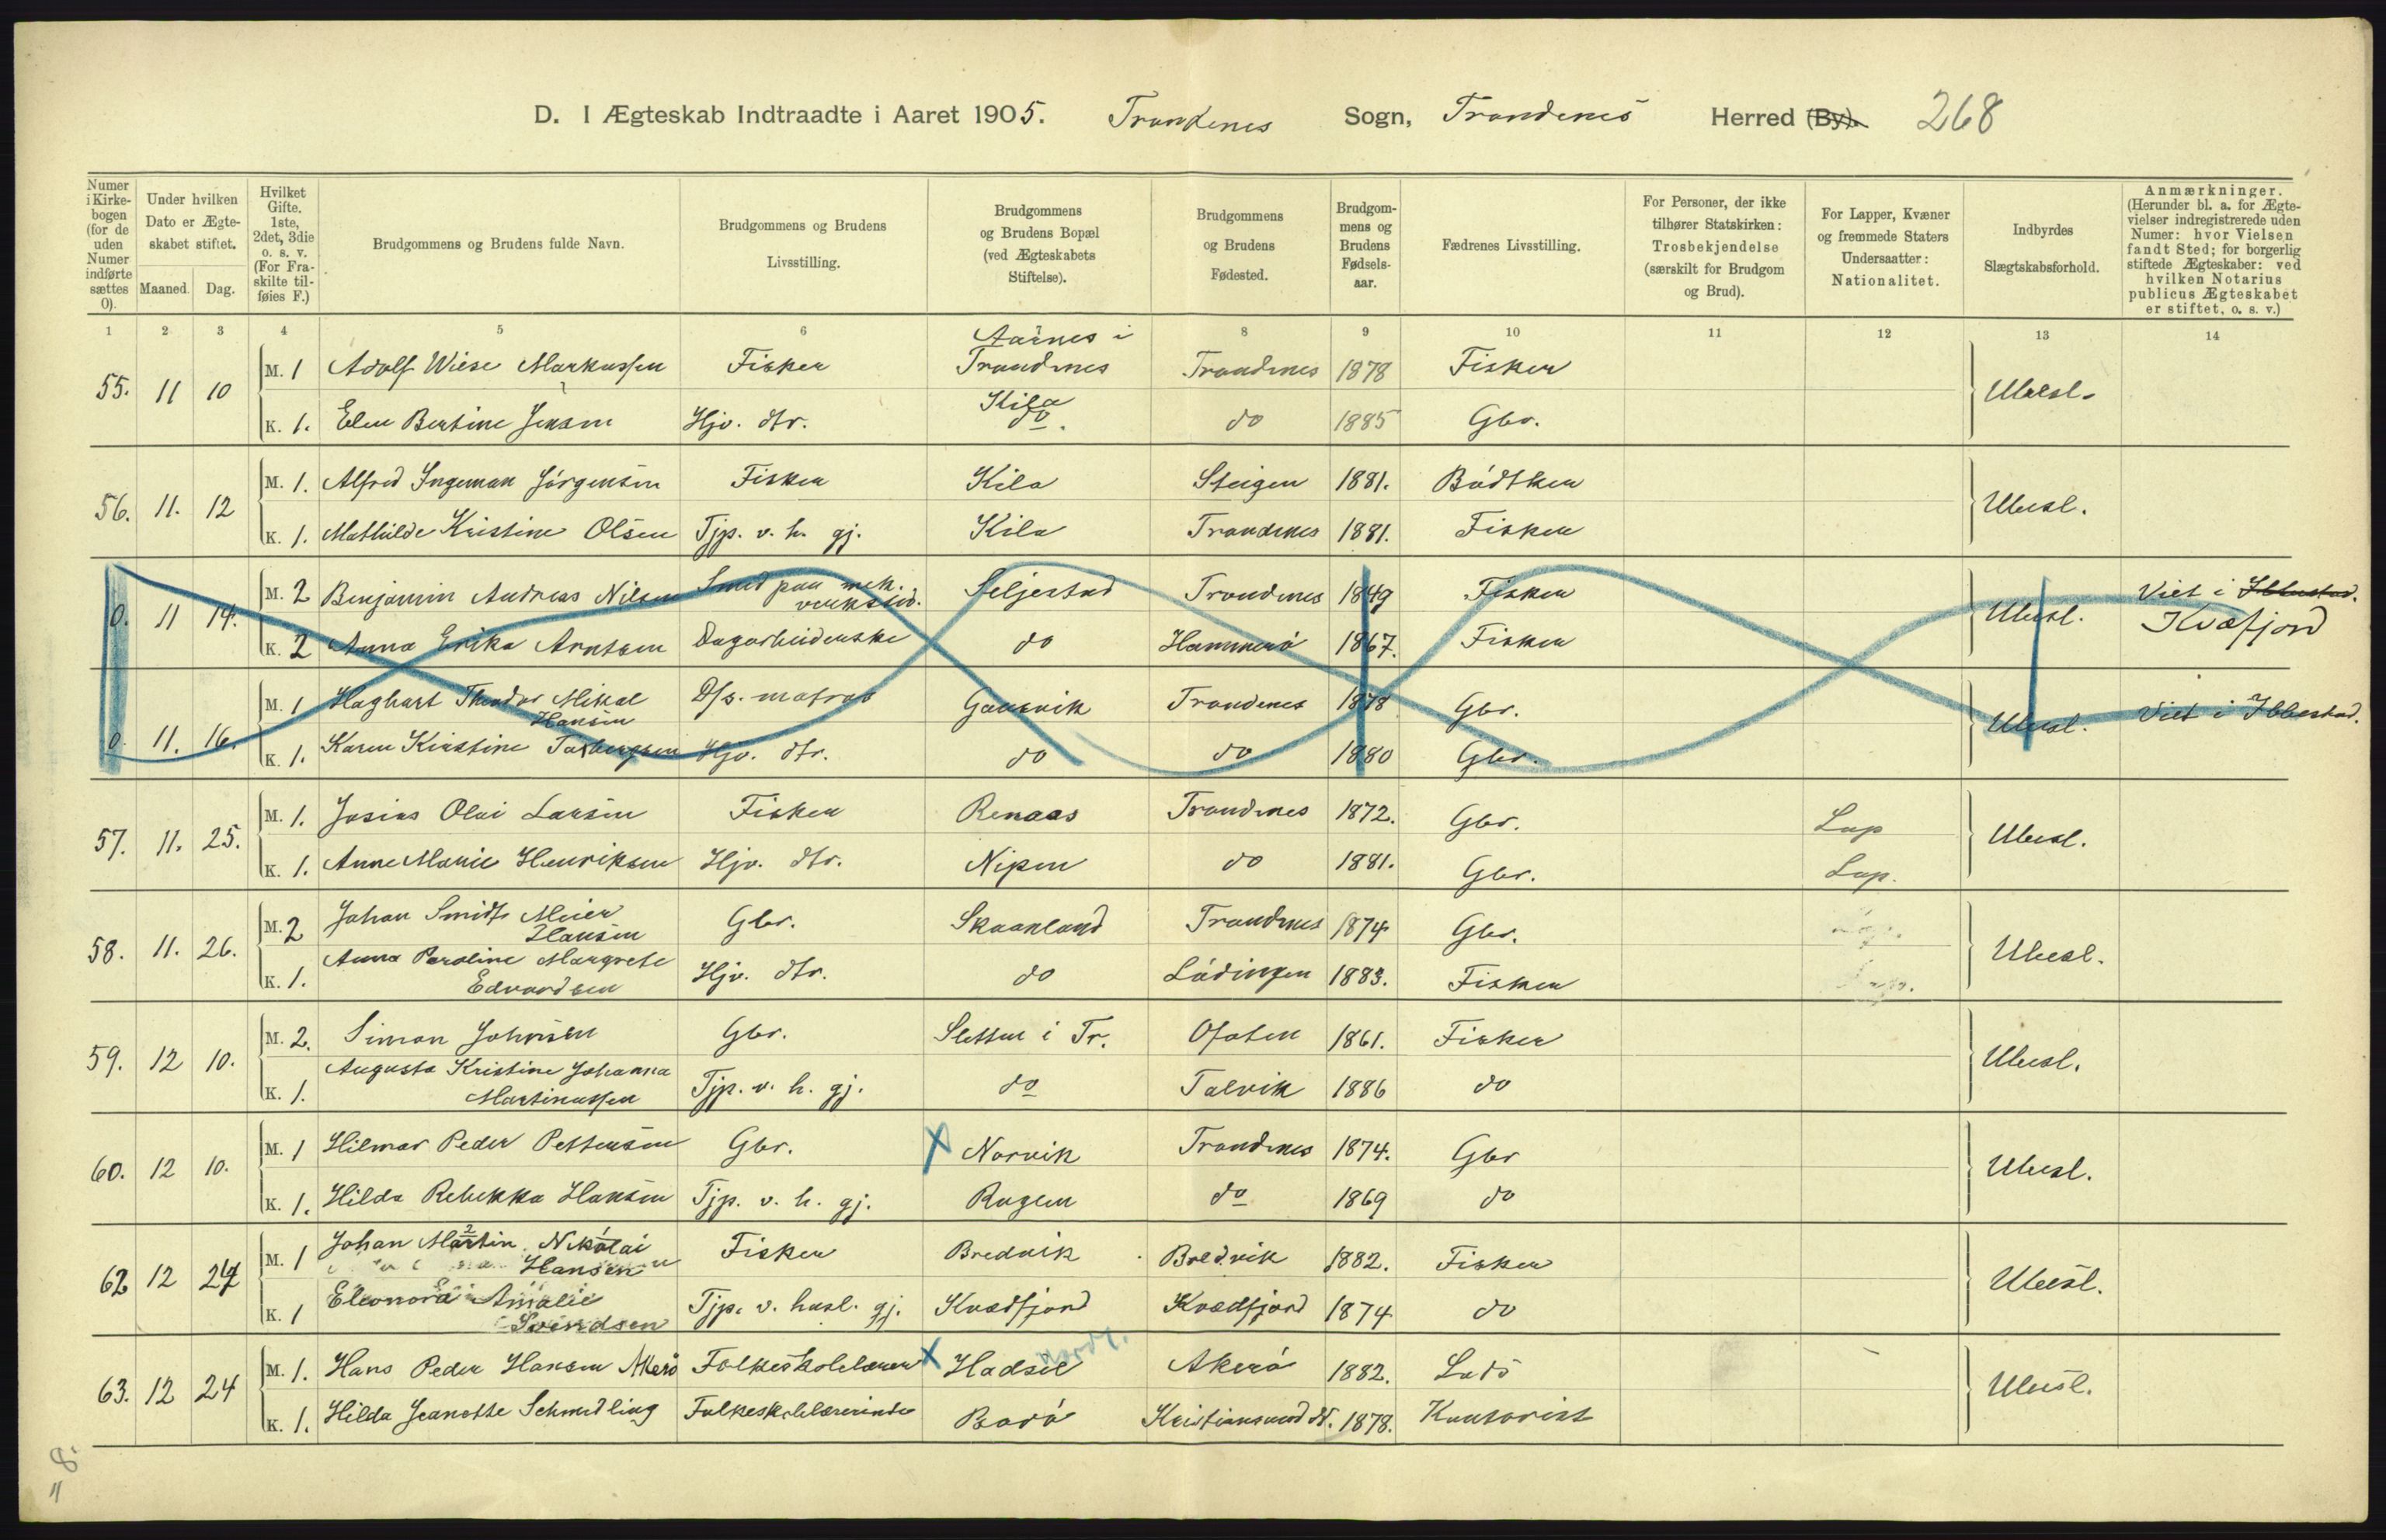 D. I Ægteskab Indtraadte i Aaret 1905. Trondenes Sogn, Trondenes Herred (By). 268
Numer i Kirkebogen (for de uden Numer indførte sættes 0).
Under hvilken Dato er Ægteskabet stiftet.
Maaned. Dag.
Hvilket Gifte. 1ste, 2det, 3die o. s. v. (For Fraskilte tilføies F.)
Brudgommens og Brudens fulde Navn.
Brudgommens og Brudens Livsstilling.
Brudgommens og Brudens Bopæl (ved Ægteskabets Stiftelse).
Brudgommens og Brudens Fødested.
Brudgommens og Brudens Fødselsaar.
Fædrenes Livsstilling.
For Personer, der ikke tilhører Statskirken: Trosbekjendelse (særskilt for Brudgom og Brud).
For Lapper, Kvæner og fremmede Staters Undersaatter: Nationalitet.
Indbyrdes Slægtskabsforhold.
Anmærkninger. (Herunder bl. a. for Ægtevielser indregistrerede uden Numer: hvor Vielsen fandt Sted; for borgerlig stiftede Ægteskaber: ved hvilken Notarius publicus Ægteskabet er stiftet, o. s. v.)
1 2 3 4 5 6 8 9 10 11 12 13 14
55. 11 10 M. 1 Adolf Wiese Markussen Fisker Aarnes i Trondenes Trondenes 1878 Fisker Ubesl.
K. 1. Elen Bertine Jensen Hjv. dtr. Kila do. do 1885 Gbr.
56. 11. 12 M. 1. Alfred Ingeman Jörgensen Fisker Kila Steigen 1881. Bödtker Ubesl.
K. 1. Mathilde Kristine Olsen Tjp. v. h. gj. Kila Trondenes 1881. Fisker
0. 11 14. M. 2 Benjamin Andreas Nilsen Smed paa mek. verksted. Seljestad Trondenes 1849 Fisker Ubesl. Viet i Ibbestad. Kvæfjord
K. 2 Anna Erika Arntsen Dagarbeiderske do Hammerö 1867. Fisker
0 11. 16. M. 1 Haghart Theodor Mikal Hansen D/s. matros Gausvik Trondenes 1878 Gbr. Ubesl. Viet i Ibbestad.
K. 1. Karen Kirstine Torbergsen Hjv. dtr. do do 1880 Gbr.
57. 11. 25. M. 1. Josias Olai Larsen Fisker Renaas Trondenes 1872. Gbr. Lap Ubesl.
K. 1. Anne Marie Henriksen Hjv. dtr. Nipen do 1881. Gbr. Lap.
58. 11. 26. M. 2 Johan Smidt Meier Hansen Gbr. Skaanland Trondenes 1874 Gbr. Ubesl.
K. 1. Anna Peroline Margrete Edvardsen Hjv. dtr. do Lödingen 1883. Fisker
59. 12 10. M. 2. Simon Johnsen Gbr. Sletten i Tr. Ofoten 1861. Fisker Ubesl.
K. 1. Augusta Kristine Johanna Martinussen Tjp. v. h. gj. do Talvik 1886 do
60. 12 10. M. 1 Hilmar Peder Pettersen Gbr. X Narvik Trondenes 1874. Gbr Ubesl.
K. 1. Hilda Rebekka Hansen Tjp. v. h. gj. Rogen do 1869 do
62 12 24 M. 1 Johan Martin Nikolai Hansen Fisker Bredvik Bredvik 1882. Fisker Ubesl.
K. 1 Eleonora Amalie Svendsen Tjp. v. husl. gj. Kvædfjord Kvædfjord 1874 do
63. 12 24 M. 1. Hans Peder Hansen Akerö Folkeskolelærer X Hadsel Nordl. Akerö 1882. Lods Ubesl.
K. 1. Hilda Jeanette Schmedling Folkeskolelærerinde Borö Kristiansund N. 1878. Kontorist
= 8.